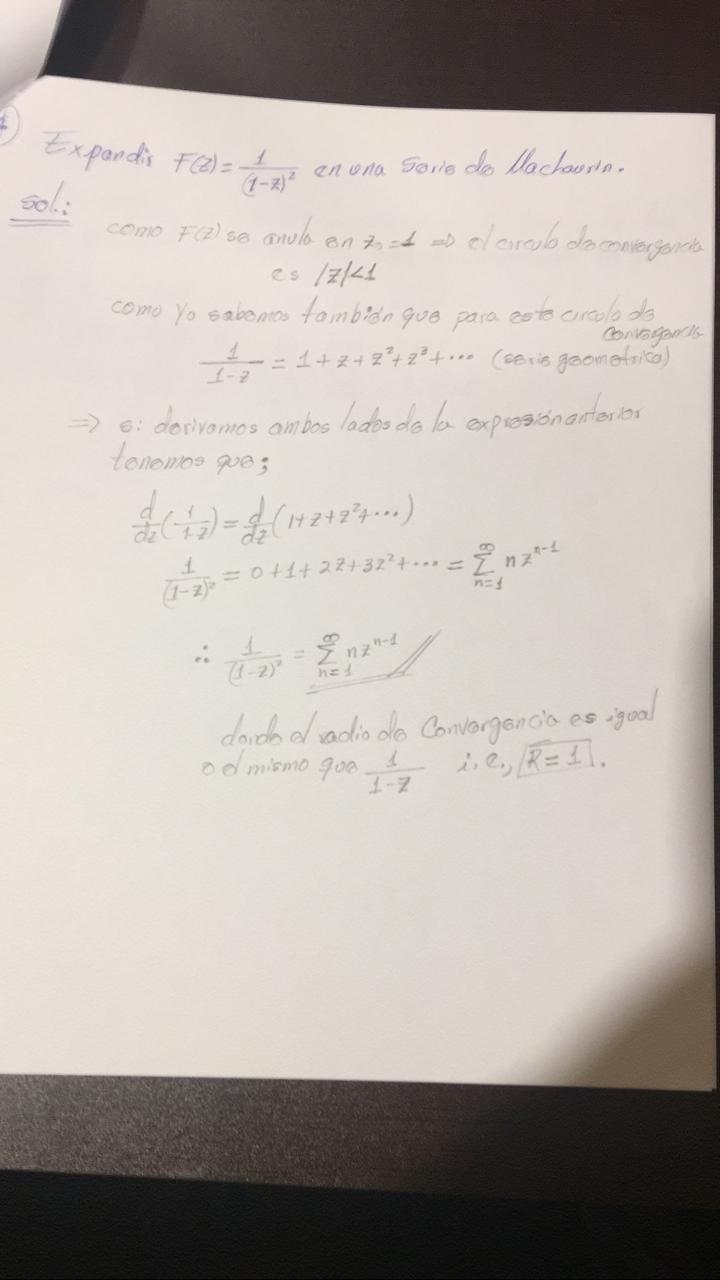 Expandir F(z) = 1/(1-z)² en una serie de Maclaurin.
Sol.:
como F(z) se anula en z₀ = 1 => el circulo de convergencia
es |z|<1
como ya sabemos también que para este circulo de
convergencia
1/(1-z) = 1 + z + z² + z³ + ... (serie geometrica)
=> si derivamos ambos lados de la expresión anterior
tenemos que;
d/dz (1/(1-z)) = d/dz (1+z+z²+...)
1/(1-z)² = 0+1+2z+3z²+... = ∑_{n=1}^{∞} n z^{n-1}
∴ 1/(1-z)² = ∑_{n=1}^{∞} n z^{n-1}
donde el radio de Convergencia es igual
o el mismo que 1/(1-z) i.e., R = 1.